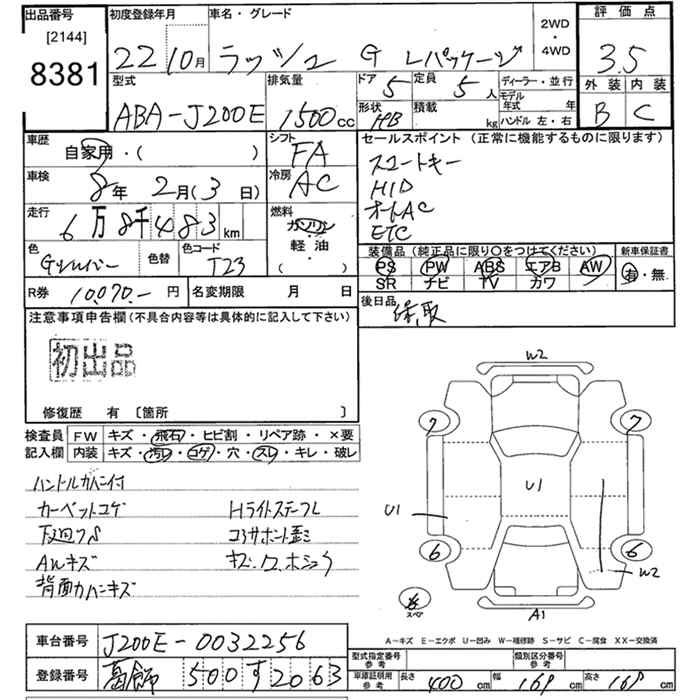 出品番号 初度登録年月 車名・グレード 2WD・4WD 評価点
[2144]
8381
22 10月 ラッシュ G Lパッケージ 3.5
型式 排気量 ドア 5 定員 5人 ディーラー・並行 外装 内装
ABA-J200E 1500cc 形状 HB 積載 kg モデル年式 年 B C
ハンドル 左・右
車歴 シフト セールスポイント (正常に機能するものに限ります)
自家用・( ) FA
車検 冷房
8年 2月(3日) AC
スマートキー
HID
オートAC
ETC
走行 燃料
6万8千483km ガソリン
軽油
( )
色 色替 色コード
Gシルバー T23
装備品 (純正品に限り○をつけてください) 新車保証書
PS PW ABS エアB AW 有・無
SR ナビ TV カワ
R券 10,070.- 円 名変期限 月 日
後日品
注意事項申告欄(不具合内容等は具体的に記入して下さい)
初出品
修復歴 有 〔箇所 〕
検査員 FW キズ・飛石・ヒビ割・リペア跡・×要
記入欄 内装 キズ・汚レ・コゲ・穴・スレ・キレ・破レ
ハンドルカバー付
カーペットコゲ Hライトステーフレ
AWキズ
背面カバーキズ
W2
7 7
U1
U1
6 6
W2
スペア
A1
A-キズ E-エクボ U-凹み W-補修跡 S-サビ C-腐食 XX-交換済
車台番号 J200E-0032256
型式指定番号 参考 類別区分番号 参考
登録番号 葛飾 500 す 2063
車庫証明用 参考 長さ 400 cm 幅 169 cm 高さ 168 cm